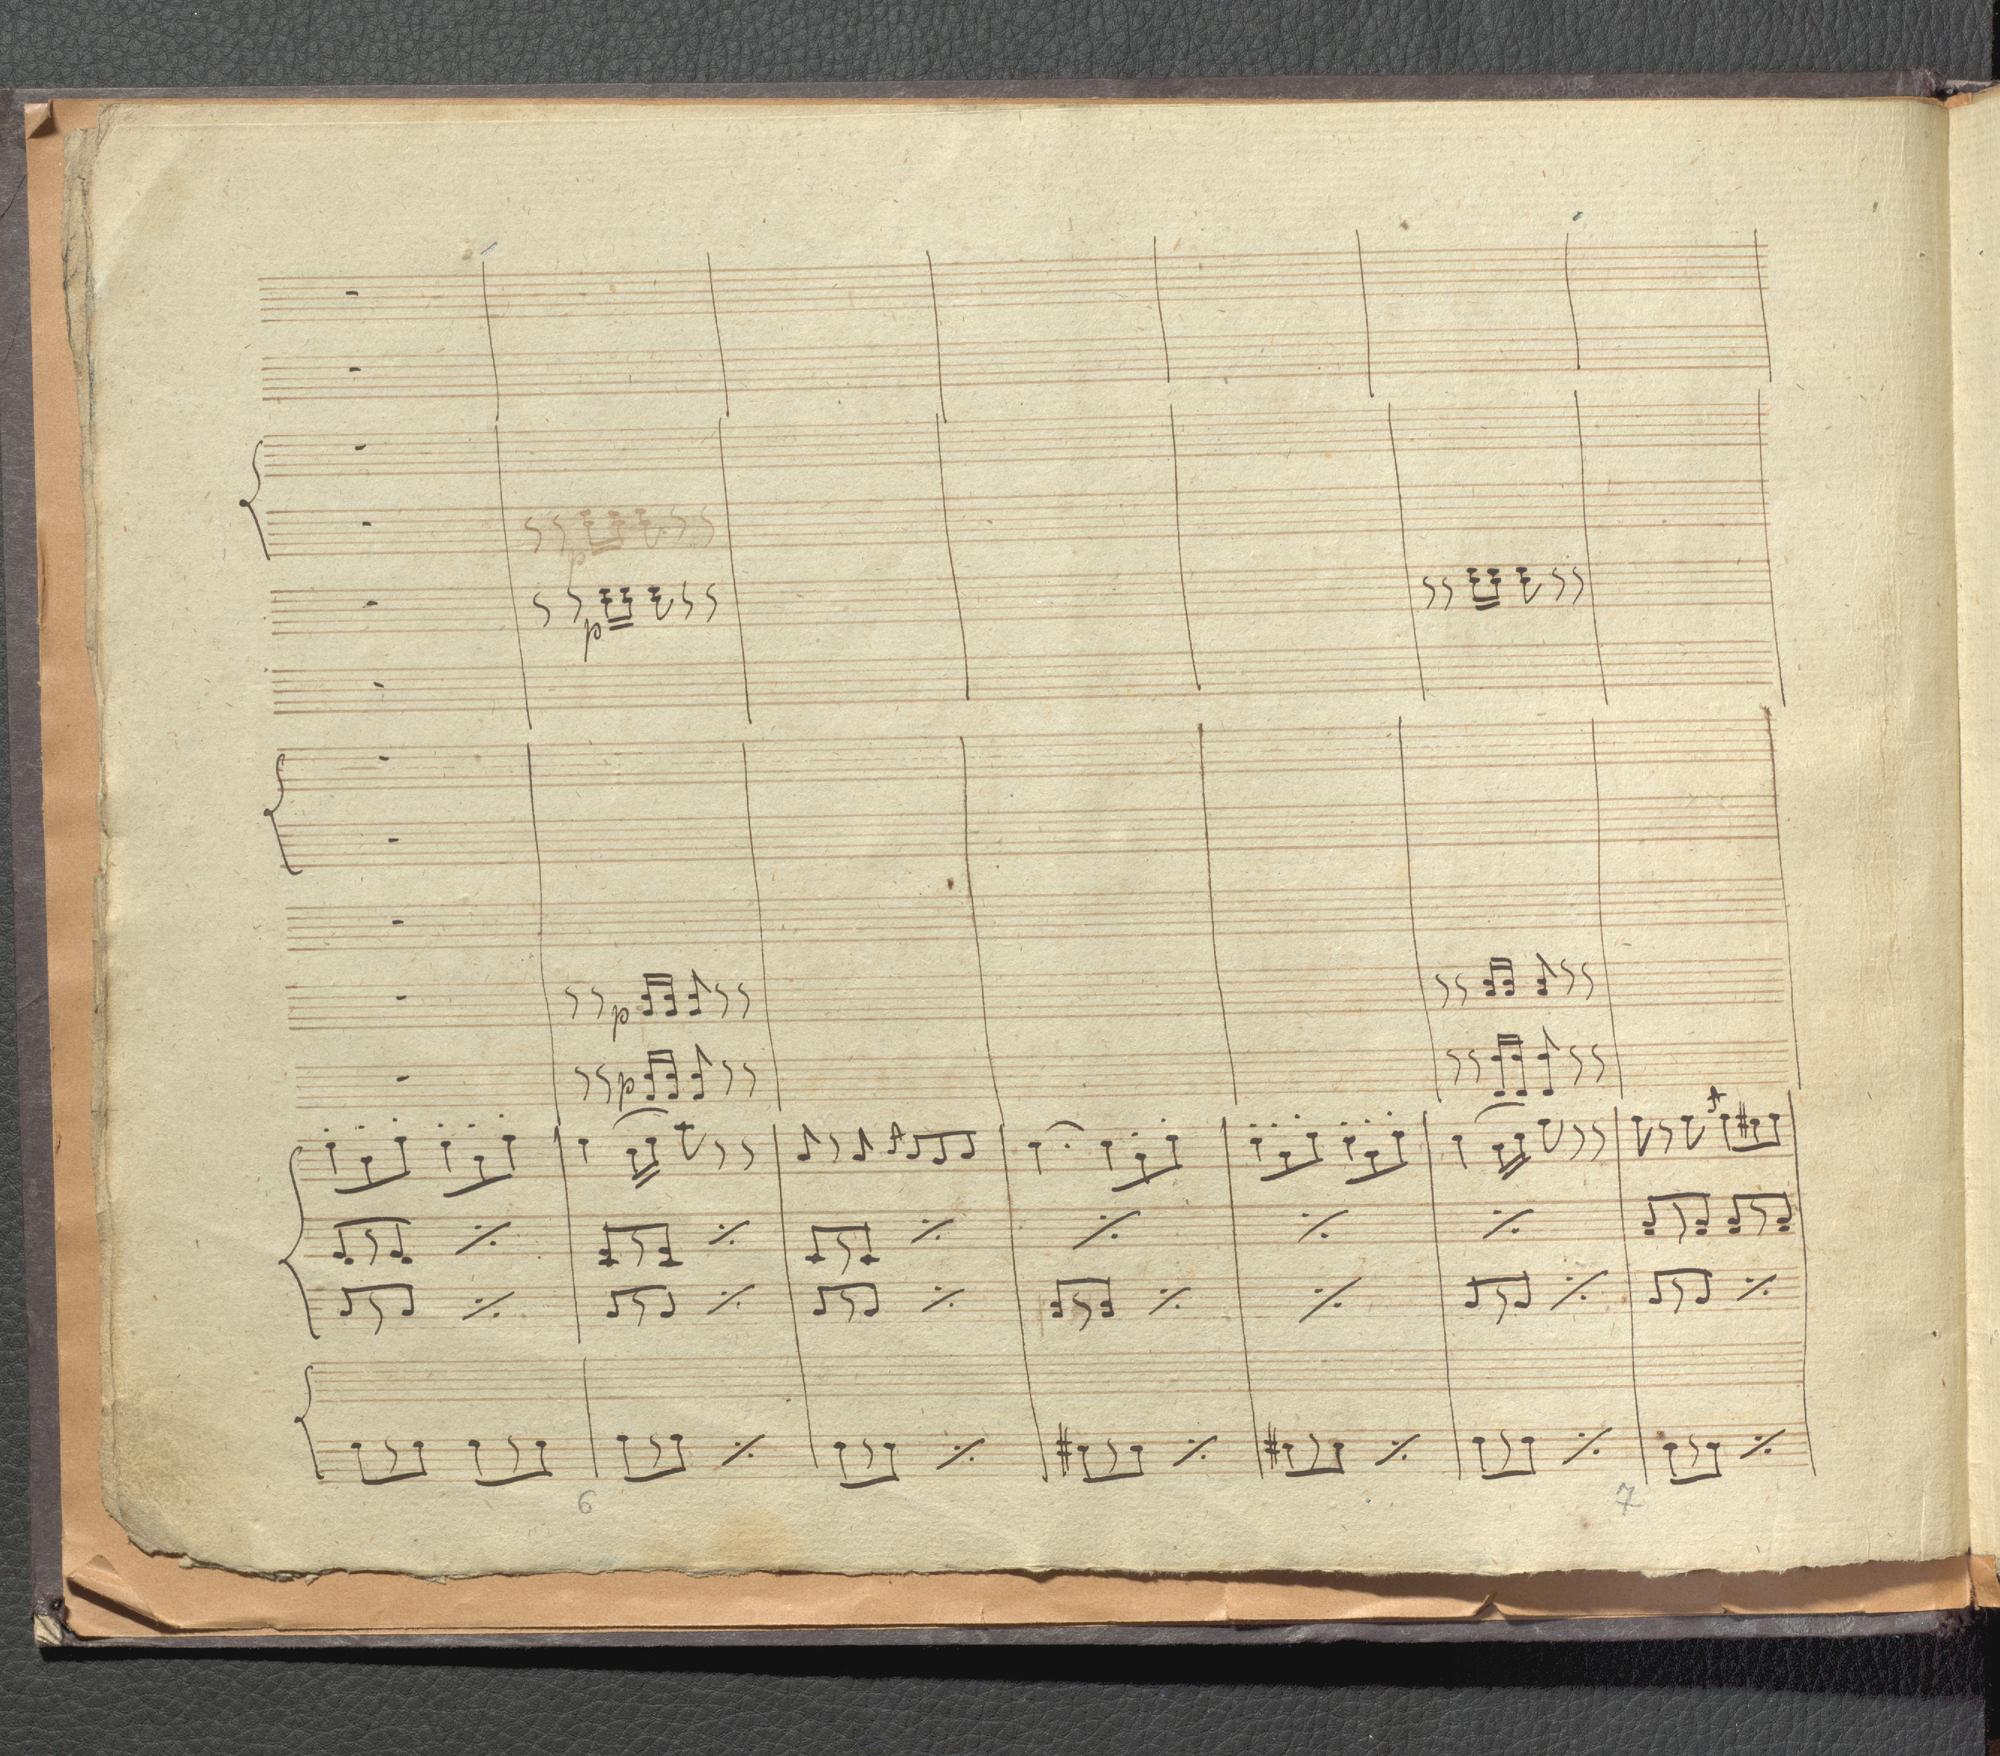 p
p
p
6 7